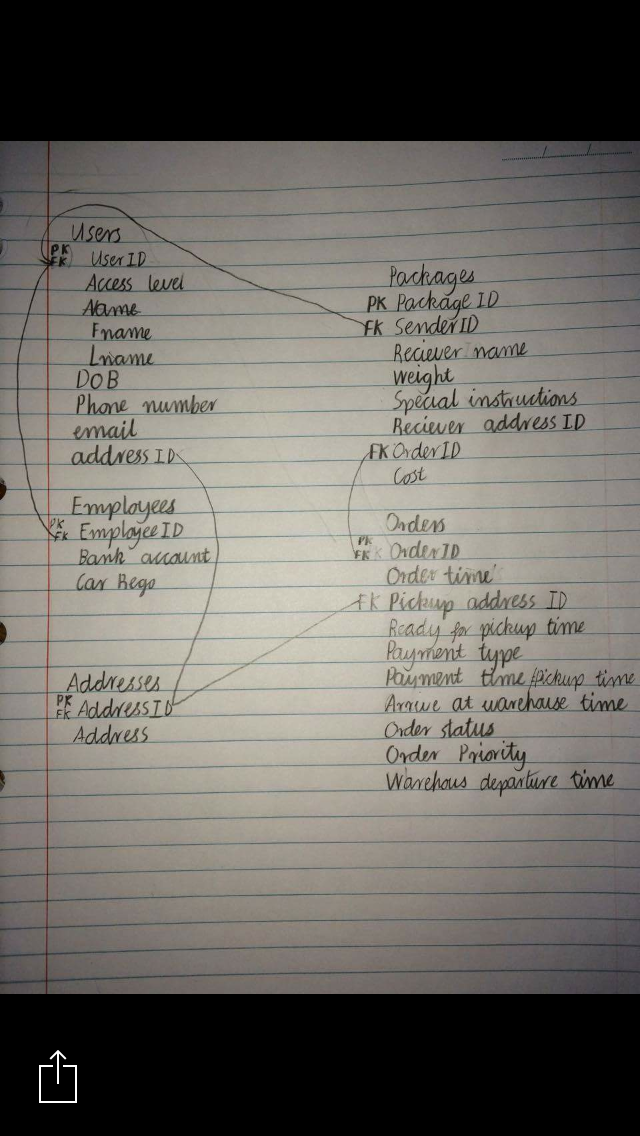 Users
PK
FK UserID
Access level
Name
Fname
Lname
DOB
Phone number
email
address ID
Employees
PK
FK EmployeeID
Bank account
Car Rego
Addresses
PK
FK AddressID
Address
Packages
PK Package ID
FK SenderID
Reciever name
Weight
Special instructions
Reciever address ID
FK OrderID
Cost
Orders
PK
FK OrderID
Order time
FK Pickup address ID
Ready for pickup time
Payment type
Payment time/pickup time
Arrive at warehouse time
Order status
Order Priority
Warehous departure time